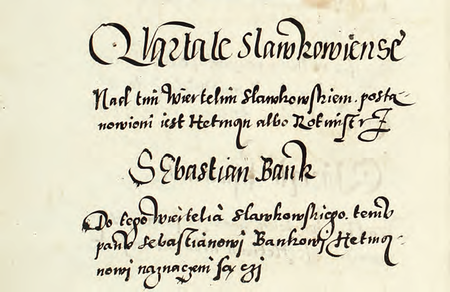 Qvartale Slawkowiense
Nad tim Wiertelim Slawkowskiem. posta-
nowioni iest Hetman albo Rotmistrz
SEbastian Bank
Do tego wiertelia Slawkowskiego. temv
panv Sebastianowi Bankowi Hetma-
nowi naznaczeni są czi